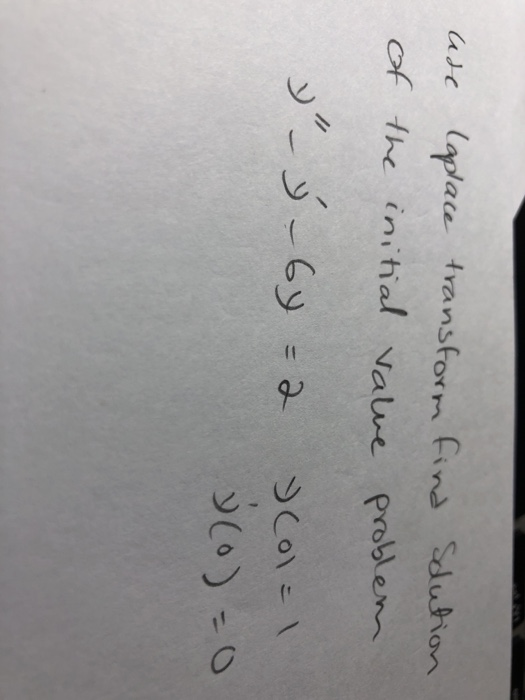 use laplace transform find solution
of the initial value problem
y'' - y' - 6y = 2 y(0) = 1
y'(0) = 0